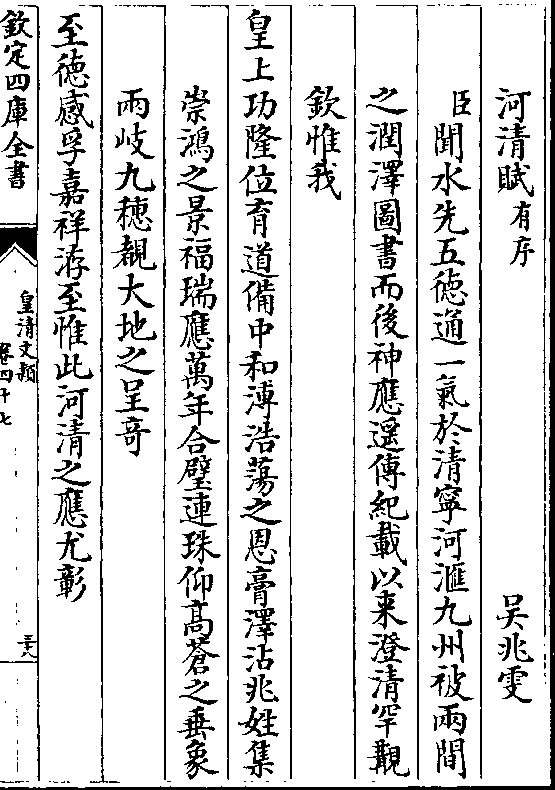 河清賦有序 吴兆雯
臣聞水先五德通一氣於清寧河滙九州被兩間
之潤澤圖書而後神應遥傳紀載以来澄清罕覯
欽惟我
皇上功隆位育道備中和溥浩蕩之恩膏澤沾兆姓集
崇鴻之景福瑞應萬年合璧連珠仰高蒼之垂象
兩岐九穂覩大地之呈竒
至德感孚嘉祥洊至惟此河清之應尤彰
欽定四庫全書
皇清文穎
卷四十七
二十八